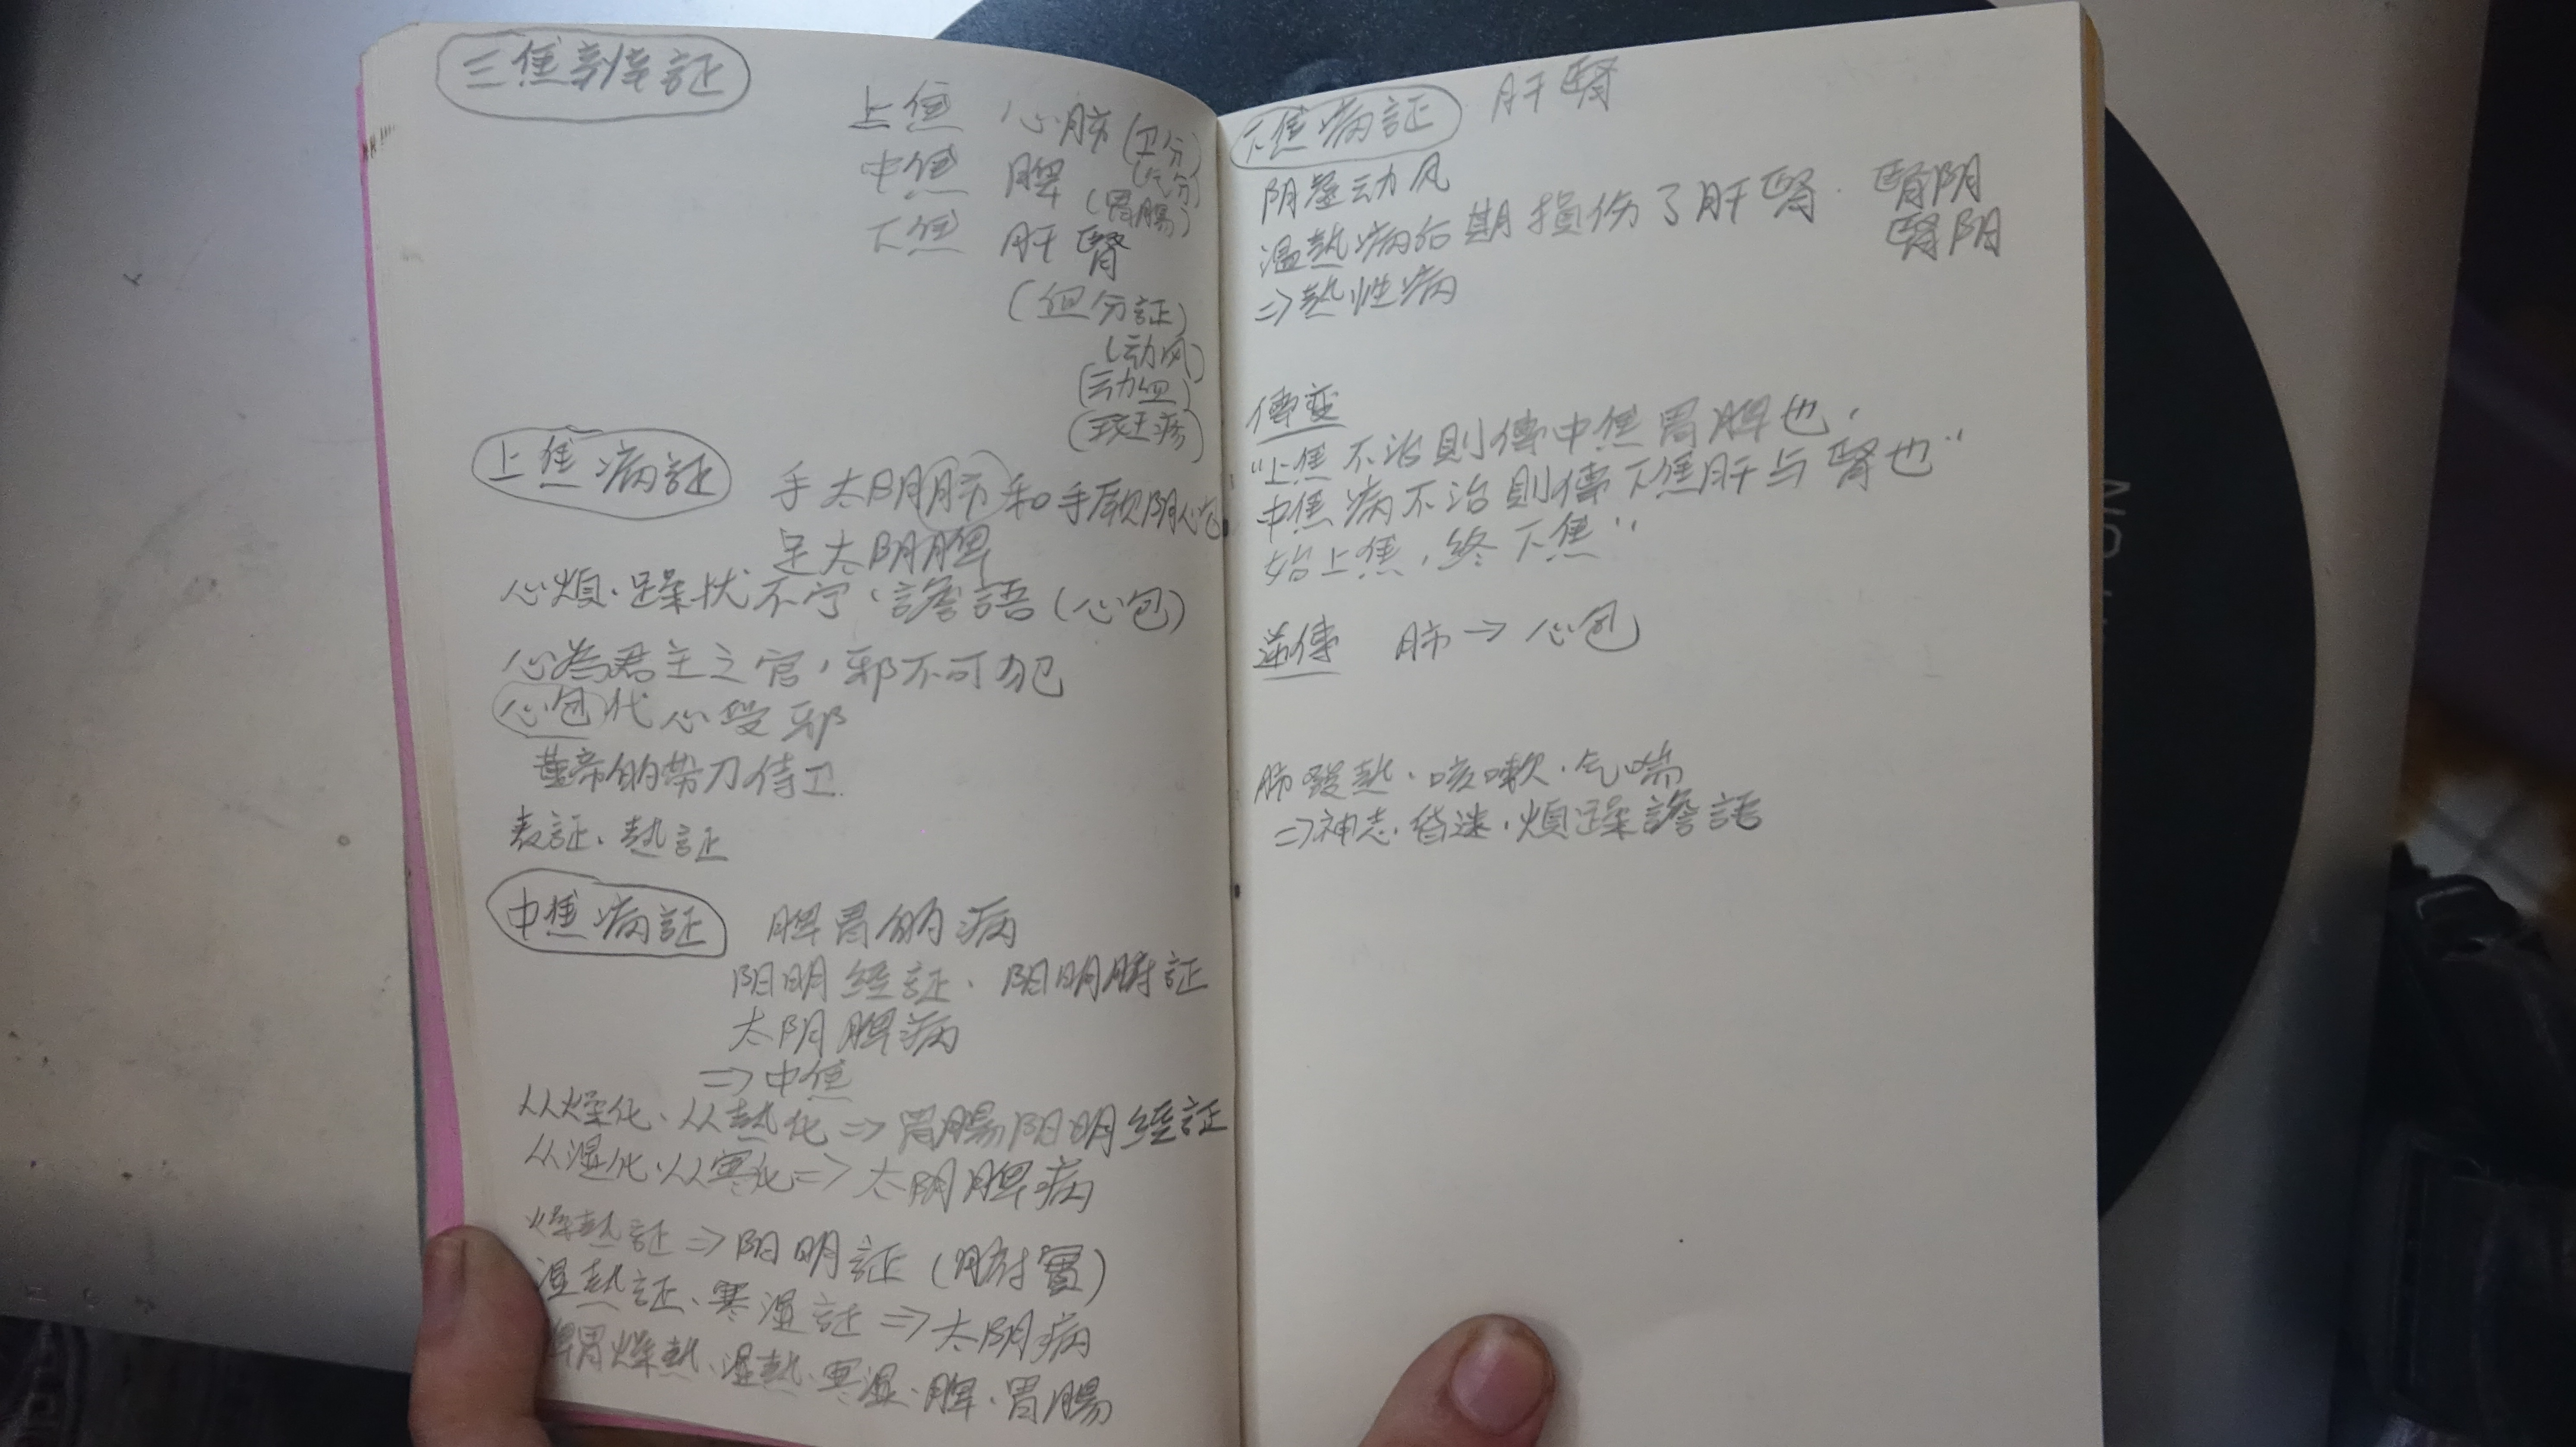 三焦辨証
上焦 心肺(卫分)
(气分)
中焦 脾(胃腸)
下焦 肝腎
(血分証)
(动风)
(动血)
(斑疹)
上焦病証 手太阴肺和手厥阴心包
足太阴脾
心煩、躁扰不宁、譫語(心包)
心為君主之官,邪不可犯
心包代心受邪
皇帝的帶刀侍卫
表証、熱証
中焦病証 脾胃的病
阳明経証、阳明腑証
太阴脾病
⇒中焦
从燥化、从熱化⇒胃腸阳明経証
从湿化、从寒化⇒太阴脾病
燥熱証⇒阳明証(腑實)
湿熱証、寒湿証⇒太阴病
脾胃燥熱、湿熱、寒湿、脾、胃腸
下焦病証 肝腎
阴虚动风
温熱病后期損伤了肝腎、腎阴
腎阴
⇒熱性病
傳变
"上焦不治則傳中焦胃脾也,
中焦病不治則傳下焦肝与腎也"
始上焦,終下焦"
逆傳 肺→心包
肺發熱、咳嗽、气喘
⇒神志昏迷、煩躁譫語